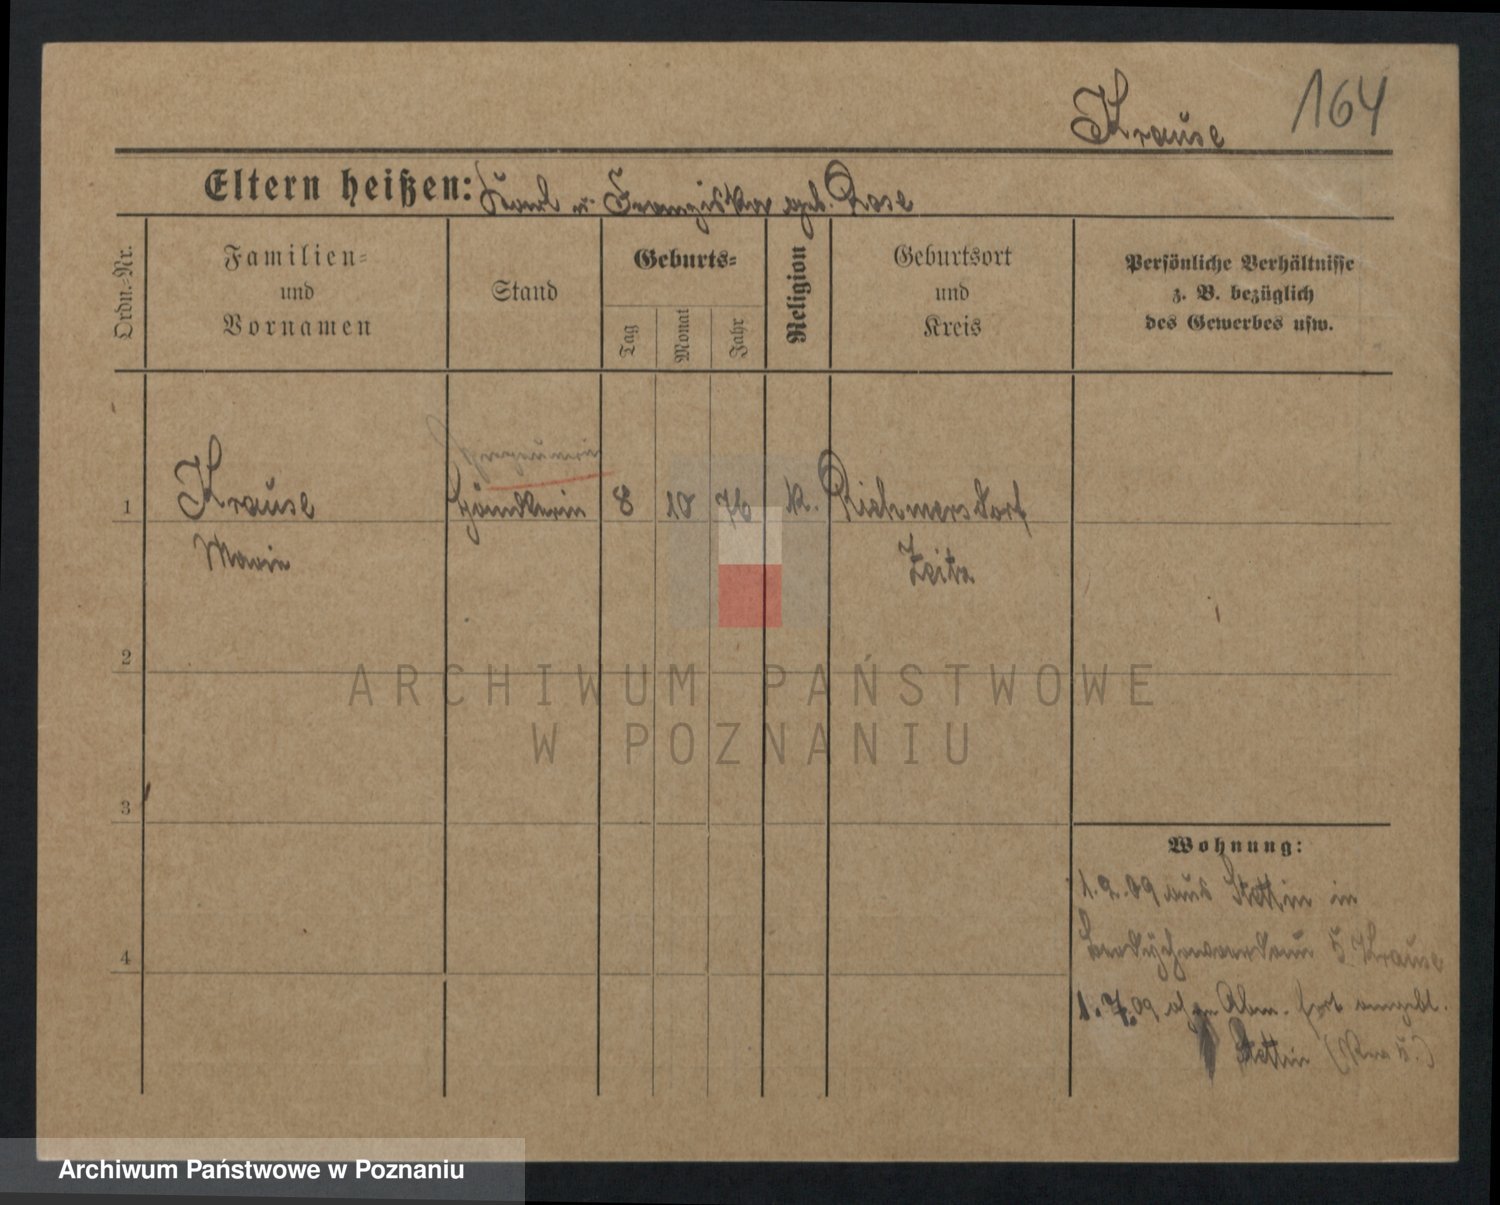 Krause 164
Eltern heißen: Karl u. Franziska geb. Rose
Ordn.-Nr.
Familien-
und
Vornamen
Stand
Geburts-
Tag
Monat
Jahr
Religion
Geburtsort
und
Kreis
Persönliche Verhältnisse
z. B. bezüglich
des Gewerbes usw.
1 Krause Händlerin 8 10 76 k. Richmersdorf
Marie Zeitz
2
3
4
Wohnung:
1.2.09 aus Stettin in
5 Krause
1.7.09 ohne Abm. fort angebl.
Stettin
ARCHIWUM PAŃSTWOWE
W POZNANIU
Archiwum Państwowe w Poznaniu